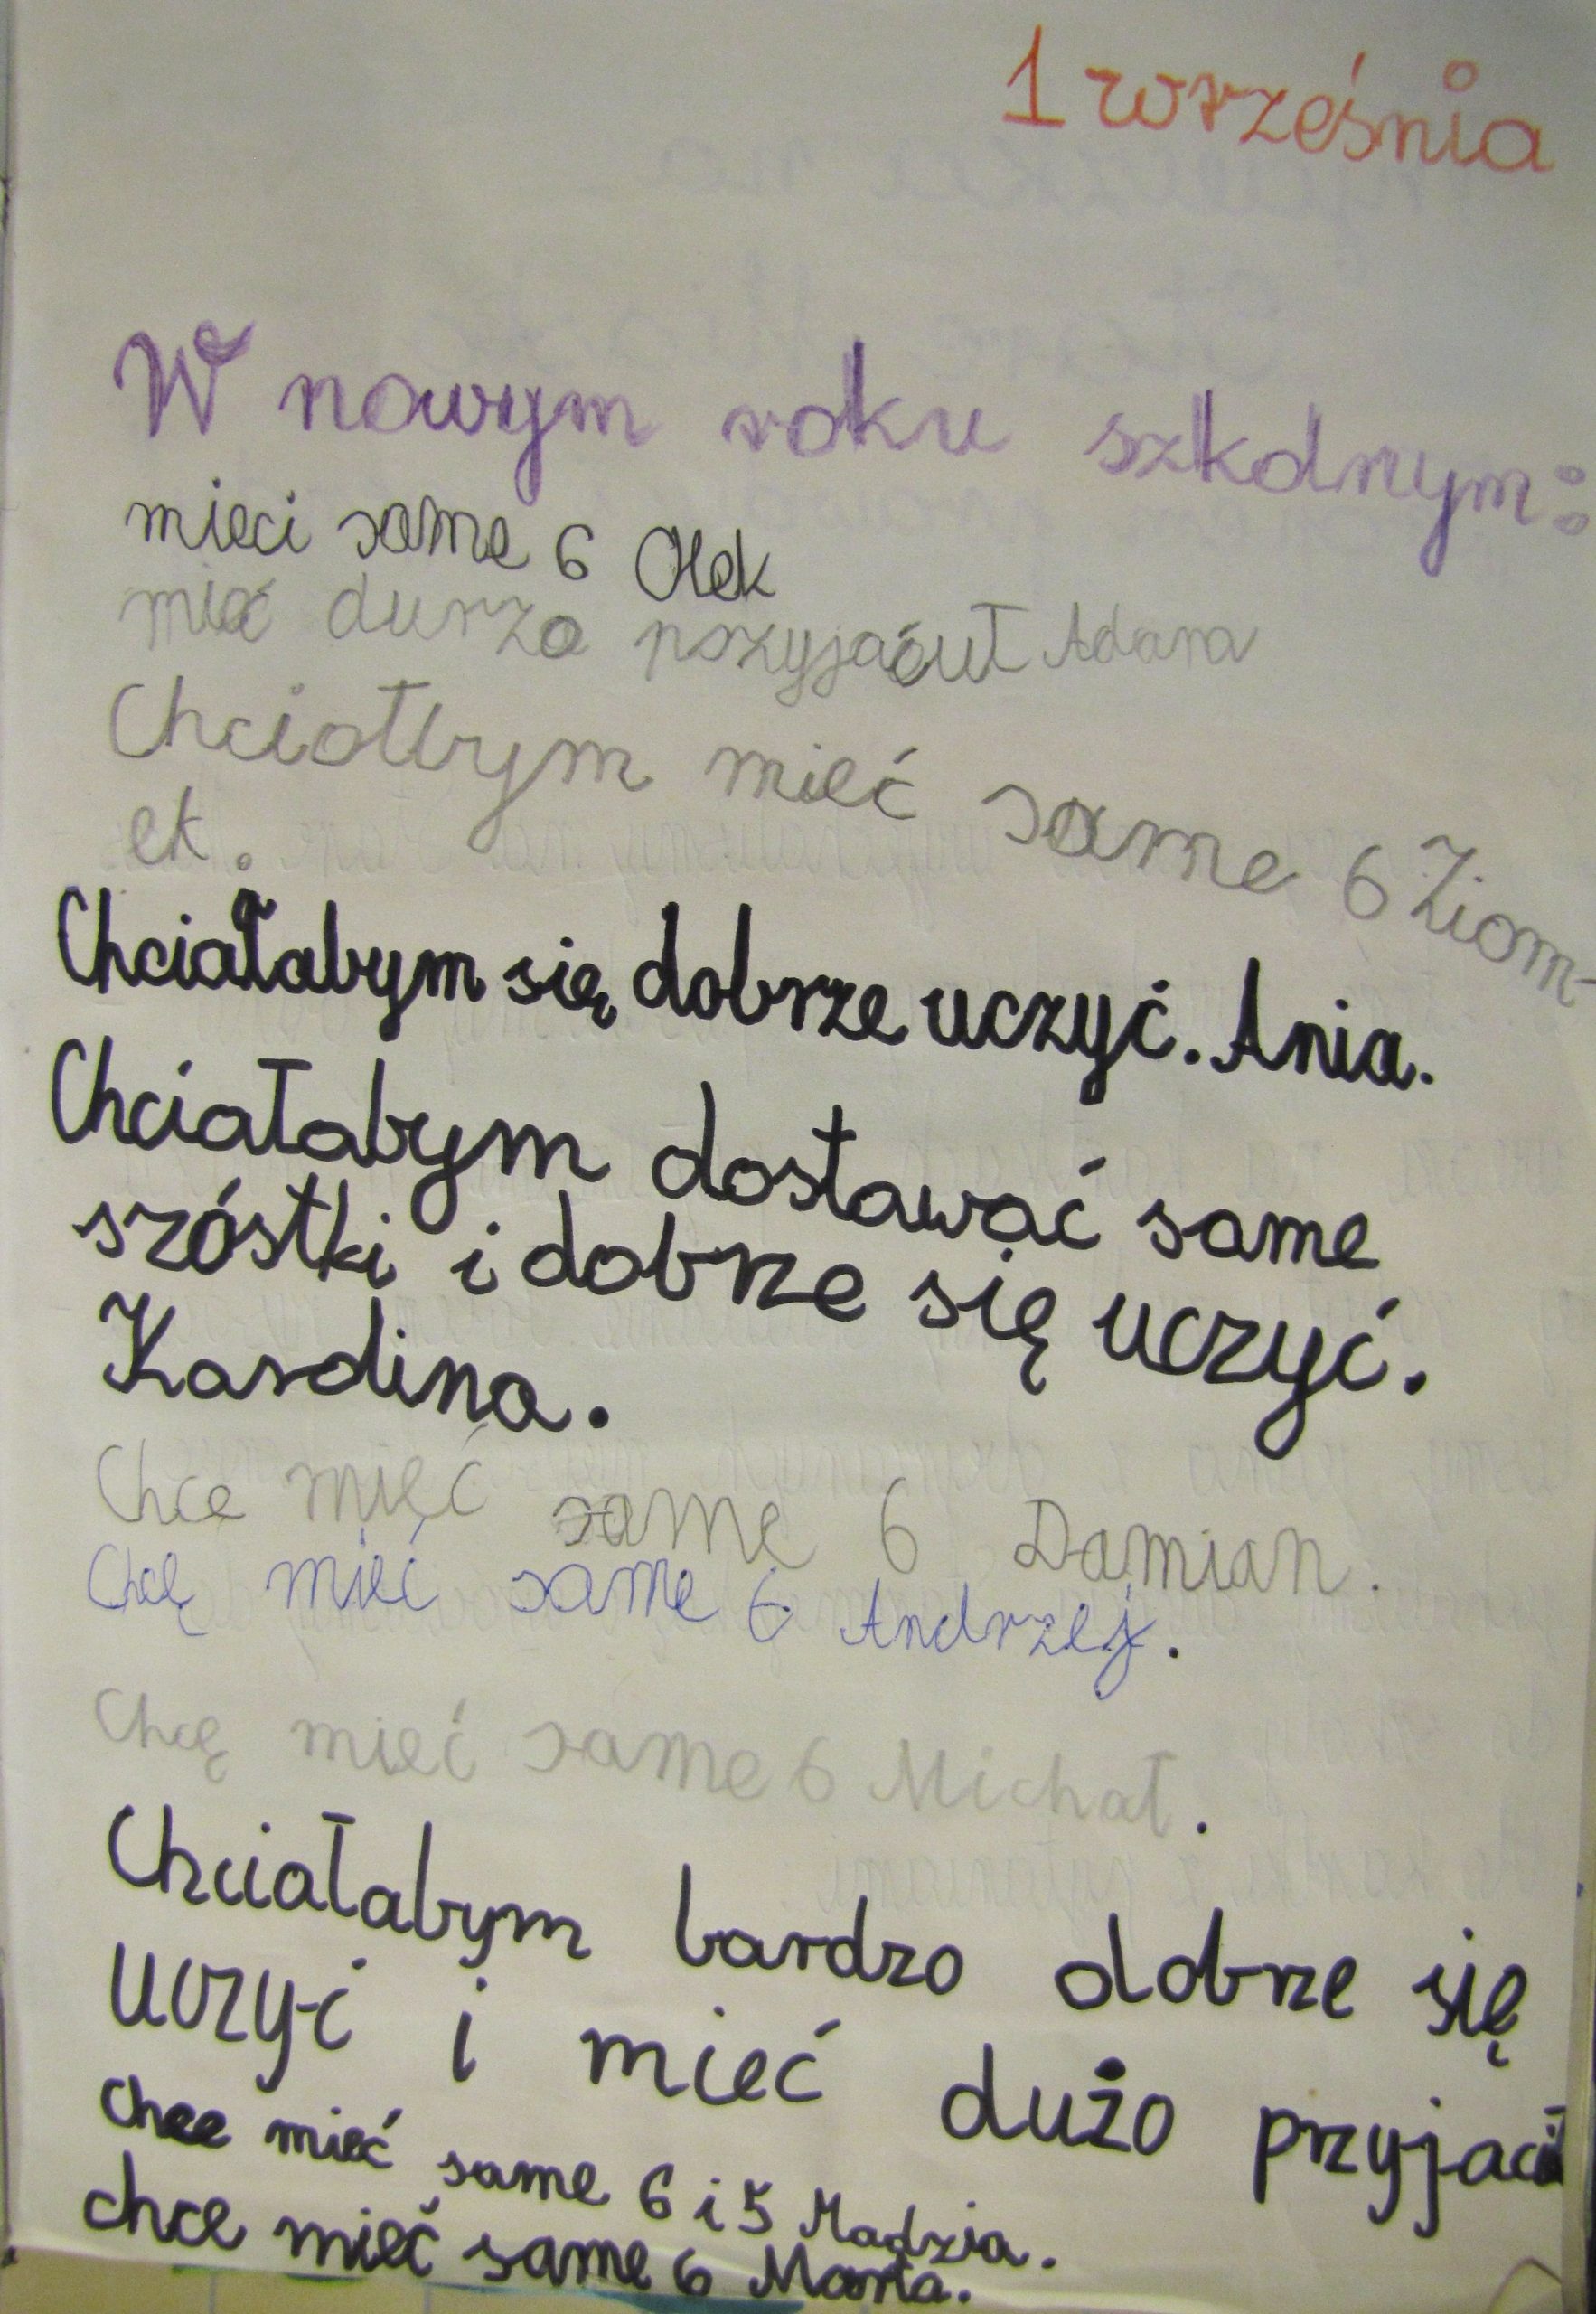 1 września
W nowym roku szkolnym:
mieci same 6 Olek
mieć durzo Adam
Chciołbym mieć same 6 Ziom-
ek.
Chciałabym się dobrze uczyć. Ania.
Chciałabym dostawać same
szóstki i dobrze się uczyć.
Karolina.
Chce mieć same 6 Damian.
Chcę mieć same 6 Andrzej.
Chcę mieć same 6 Michał.
Chciałabym bardzo dobrze się
uczyć i mieć dużo
chce mieć same 6 i 5 Madzia.
chce mieć same 6 Marta.